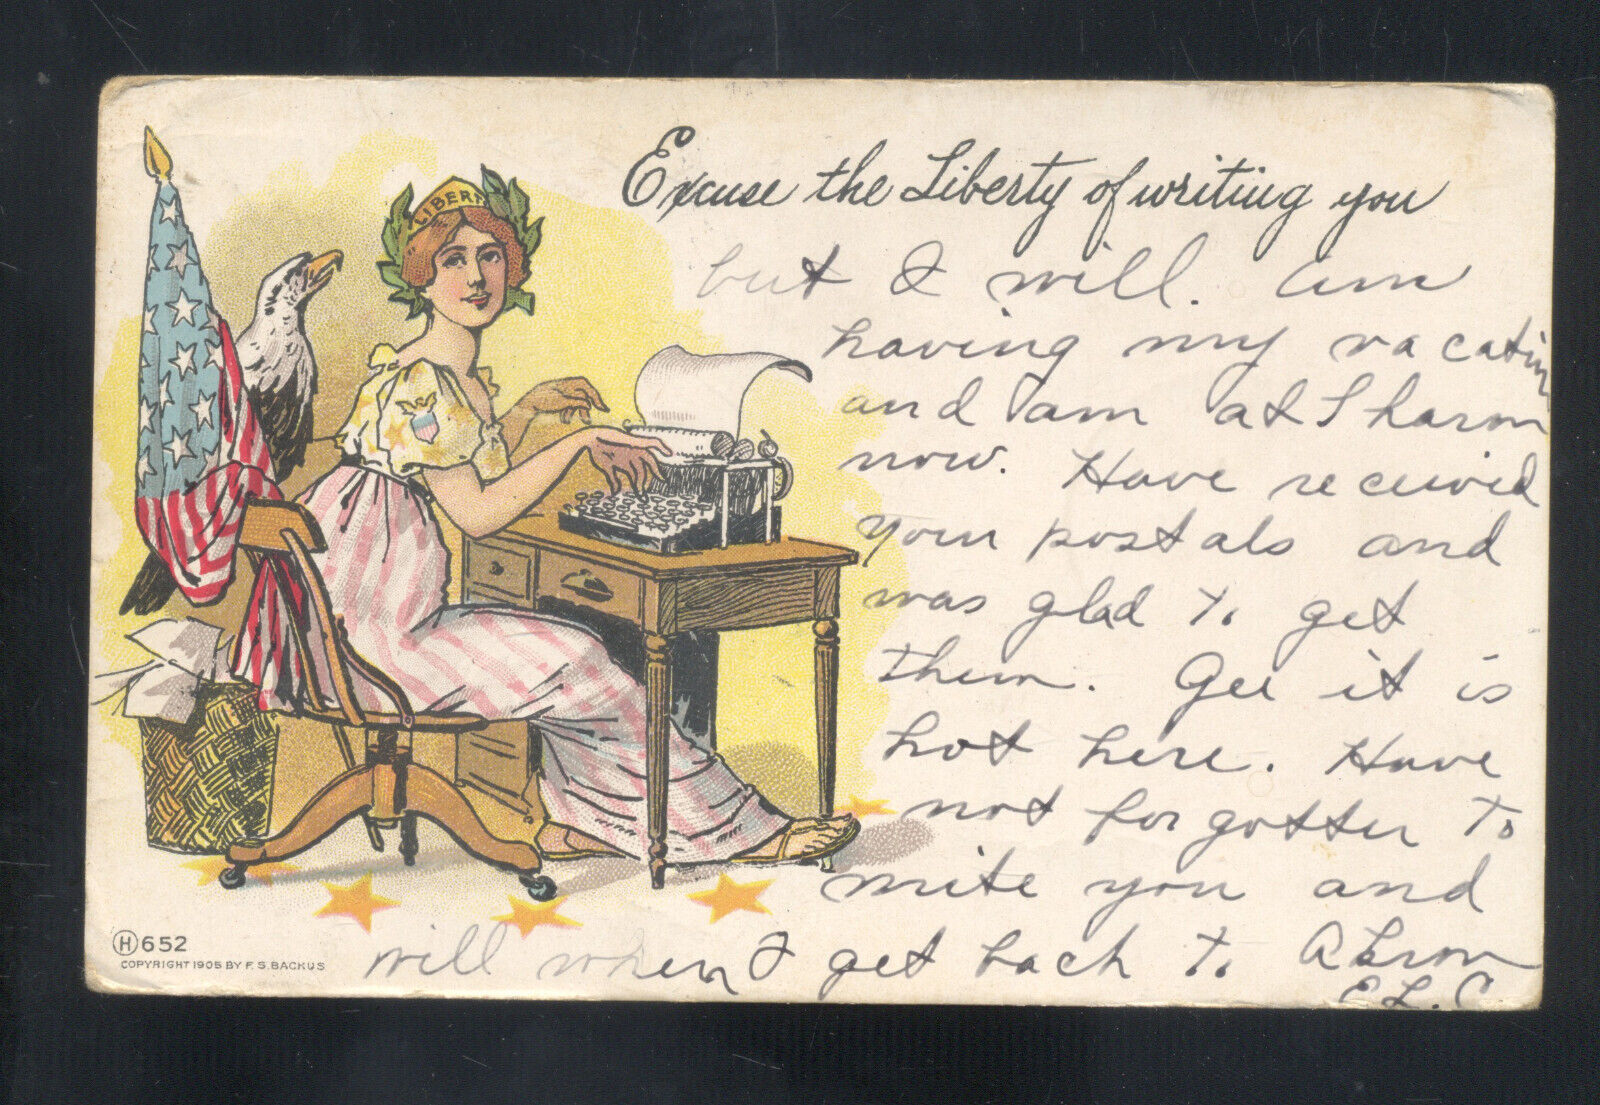 Excuse the Liberty of writing you
LIBERT
but I will. Am
having my vacation
and am at Sharon
now. Have received
your postals and
was glad to get
them. Gee it is
hot here. Have
not forgotten to
write you and
will when I get back to Akron
E. L. C
H 652
COPYRIGHT 1905 BY F. S. BACKUS